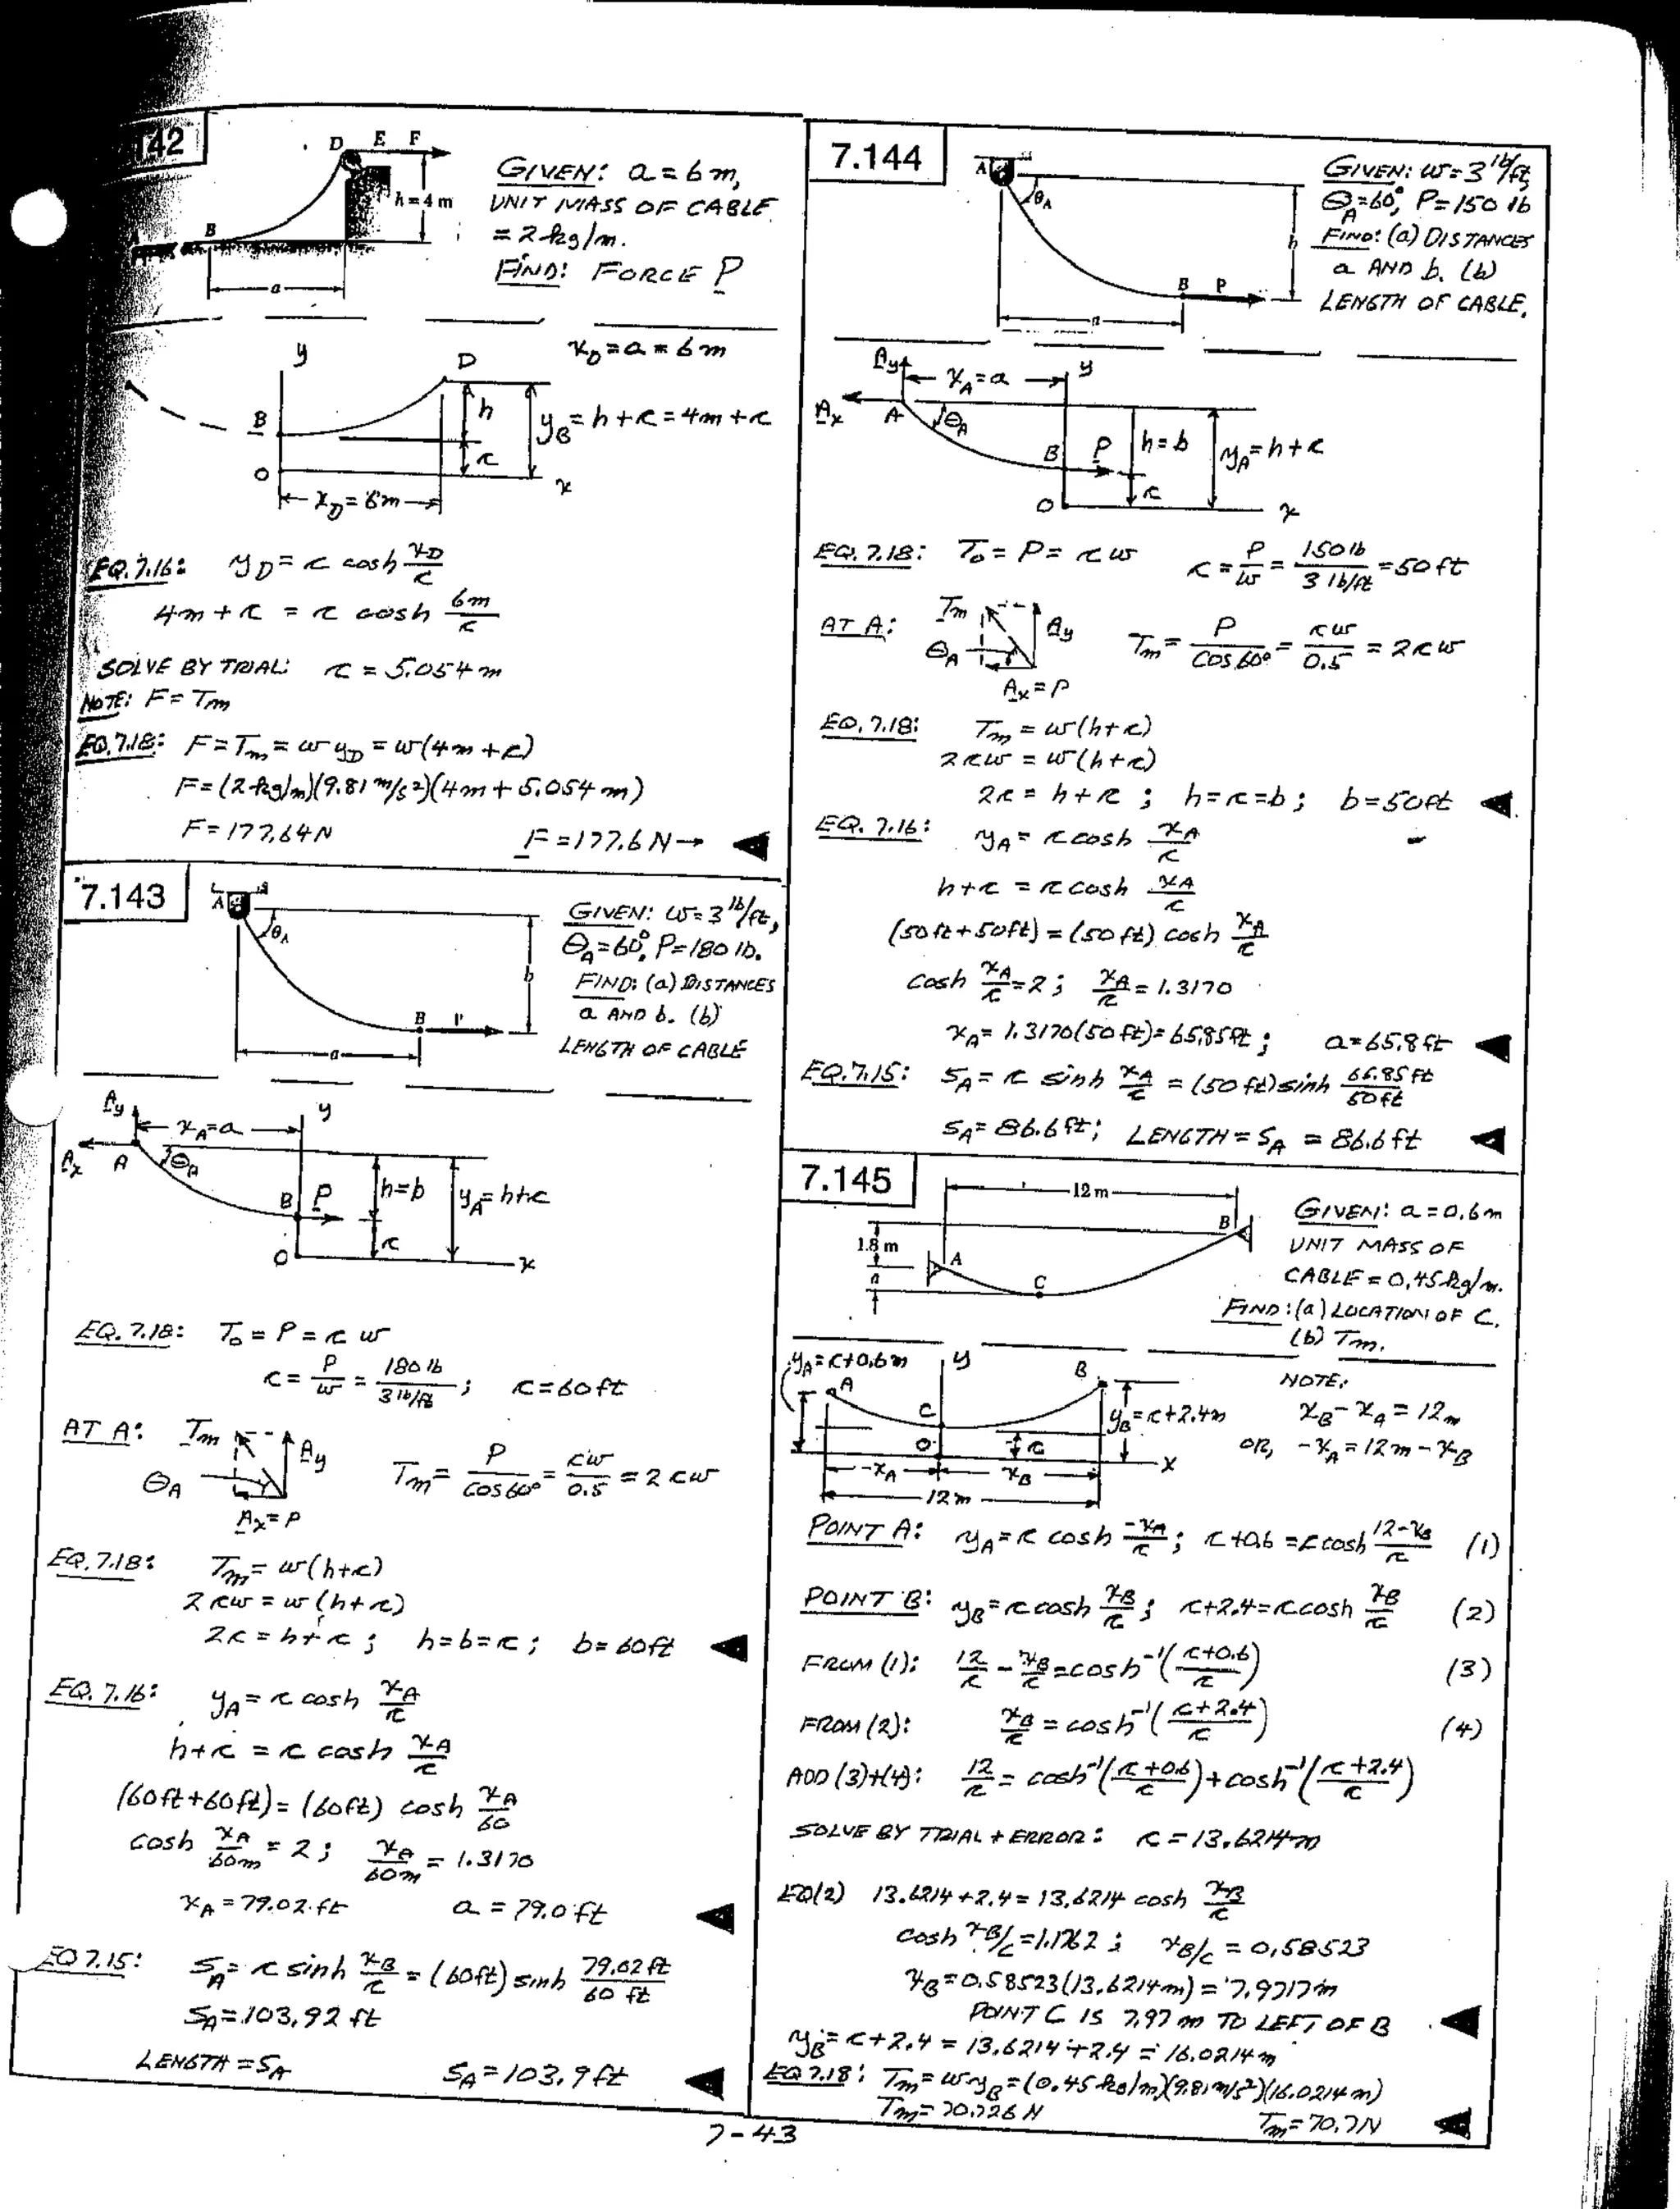 142
D E F
h = 4 m
B
a
GIVEN: a = 6 m,
UNIT MASS OF CABLE
= 2 kg/m.
FIND: FORCE P
x_D = a = 6 m
y
D
B
h
y_B = h + c = 4m + c
c
O
x
x_D = 6m
EQ. 7.16: y_D = c cosh x_D/c
4m + c = c cosh 6m/c
SOLVE BY TRIAL: c = 5.054 m
NOTE: F = Tm
EQ. 7.18: F = Tm = w y_D = w(4m + c)
F = (2 kg/m)(9.81 m/s²)(4m + 5.054 m)
F = 177.64 N F = 177.6 N →
7.143
A
θ_A
b
B P
a
GIVEN: w = 3 lb/ft,
θ_A = 60°, P = 180 lb.
FIND: (a) DISTANCES
a AND b. (b)
LENGTH OF CABLE
A_y
x_A = a
y
A_x A
θ_A
B P
h = b
y_A = h + c
c
O
x
EQ. 7.18: T_0 = P = c w
c = P/w = 180 lb / 3 lb/ft ; c = 60 ft
AT A: Tm A_y
θ_A
A_x = P
Tm = P/cos 60° = cw/0.5 = 2 cw
EQ. 7.18: Tm = w(h+c)
2cw = w(h+c)
2c = h + c ; h = b = c ; b = 60 ft
EQ. 7.16: y_A = c cosh x_A/c
h + c = c cosh x_A/c
(60ft + 60ft) = (60ft) cosh x_A/60
cosh x_A/60m = 2 ; x_A/60m = 1.3170
x_A = 79.02 ft a = 79.0 ft
EQ 7.15: S_A = c sinh x_B/c = (60ft) sinh 79.02 ft/60 ft
S_A = 103.92 ft
LENGTH = S_A S_A = 103.9 ft
7.144
A
θ_A
h
B P
a
GIVEN: w = 3 lb/ft,
θ_A = 60°, P = 150 lb
FIND: (a) DISTANCES
a AND b. (b)
LENGTH OF CABLE.
A_y
x_A = a
y
A_x A
θ_A
B P
h = b
y_A = h + c
c
O
x
EQ. 7.18: T_0 = P = c w c = P/w = 150 lb / 3 lb/ft = 50 ft
AT A: Tm A_y
θ_A
A_x = P
Tm = P/cos 60° = cw/0.5 = 2cw
EQ. 7.18: Tm = w(h+c)
2cw = w(h+c)
2c = h + c ; h = c = b ; b = 50ft
EQ. 7.16: y_A = c cosh x_A/c
h + c = c cosh x_A/c
(50 ft + 50 ft) = (50 ft) cosh x_A/c
cosh x_A/c = 2 ; x_A/c = 1.3170
x_A = 1.3170(50 ft) = 65.85 ft ; a = 65.8 ft
EQ. 7.15: S_A = c sinh x_A/c = (50 ft) sinh 65.85 ft/50 ft
S_A = 86.6 ft; LENGTH = S_A = 86.6 ft
7.145
12 m
B
1.8 m
A
a
C
GIVEN: a = 0.6 m
UNIT MASS OF
CABLE = 0.45 kg/m.
FIND: (a) LOCATION OF C.
(b) Tm.
y_A = c + 0.6 m
y
A
B
C
O
c
y_B = c + 2.4m
x
-x_A
x_B
12 m
NOTE:
x_B - x_A = 12 m
OR, -x_A = 12 m - x_B
POINT A: y_A = c cosh -x_A/c ; c + 0.6 = c cosh 12-x_B/c (1)
POINT B: y_B = c cosh x_B/c ; c + 2.4 = c cosh x_B/c (2)
FROM (1): 12/c - x_B/c = cosh⁻¹(c+0.6/c) (3)
FROM (2): x_B/c = cosh⁻¹(c+2.4/c) (4)
ADD (3)+(4): 12/c = cosh⁻¹(c+0.6/c) + cosh⁻¹(c+2.4/c)
SOLVE BY TRIAL + ERROR: c = 13.6214 m
EQ(2) 13.6214 + 2.4 = 13.6214 cosh x_B/c
cosh x_B/c = 1.1762 ; x_B/c = 0.58523
x_B = 0.58523(13.6214 m) = 7.9717 m
POINT C IS 7.97 m TO LEFT OF B
y_B = c + 2.4 = 13.6214 + 2.4 = 16.0214 m
EQ 7.18: Tm = w y_B = (0.45 kg/m)(9.81 m/s²)(16.0214 m)
Tm = 70.726 N Tm = 70.7 N
7-43